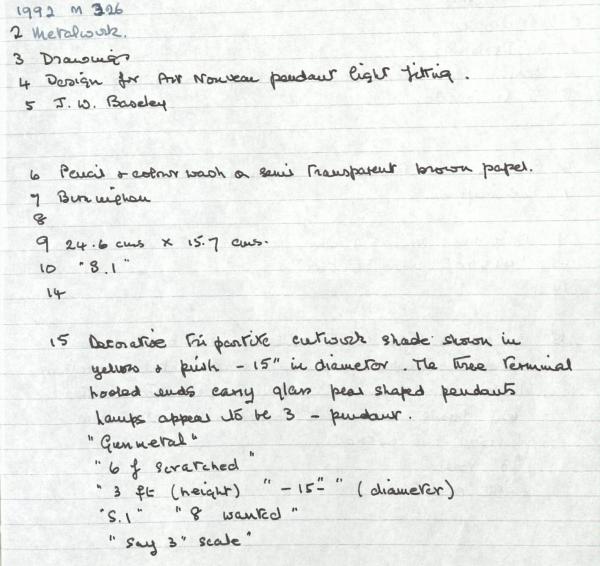 1992 M 326
2 Metalwork.
3 Drawings
4 Design for Art Nouveau pendant light fitting.
5 J. W. Baseley
6 Pencil & colour wash on semi transparent brown paper.
7 Birmingham
8
9 24.6 cms x 15.7 cms.
10 "S.1"
14
15 Decorative tri partite cutwork shade shown in
yellow & pink - 15" in diameter. The three terminal
hooked ends carry glass pear shaped pendants
lamps appear to be 3 - pendant.
"Gunmetal"
"6 of scratched"
"3 ft (height) " - 15" " (diameter)
"S.1" "8 wanted"
"Say 3" scale"